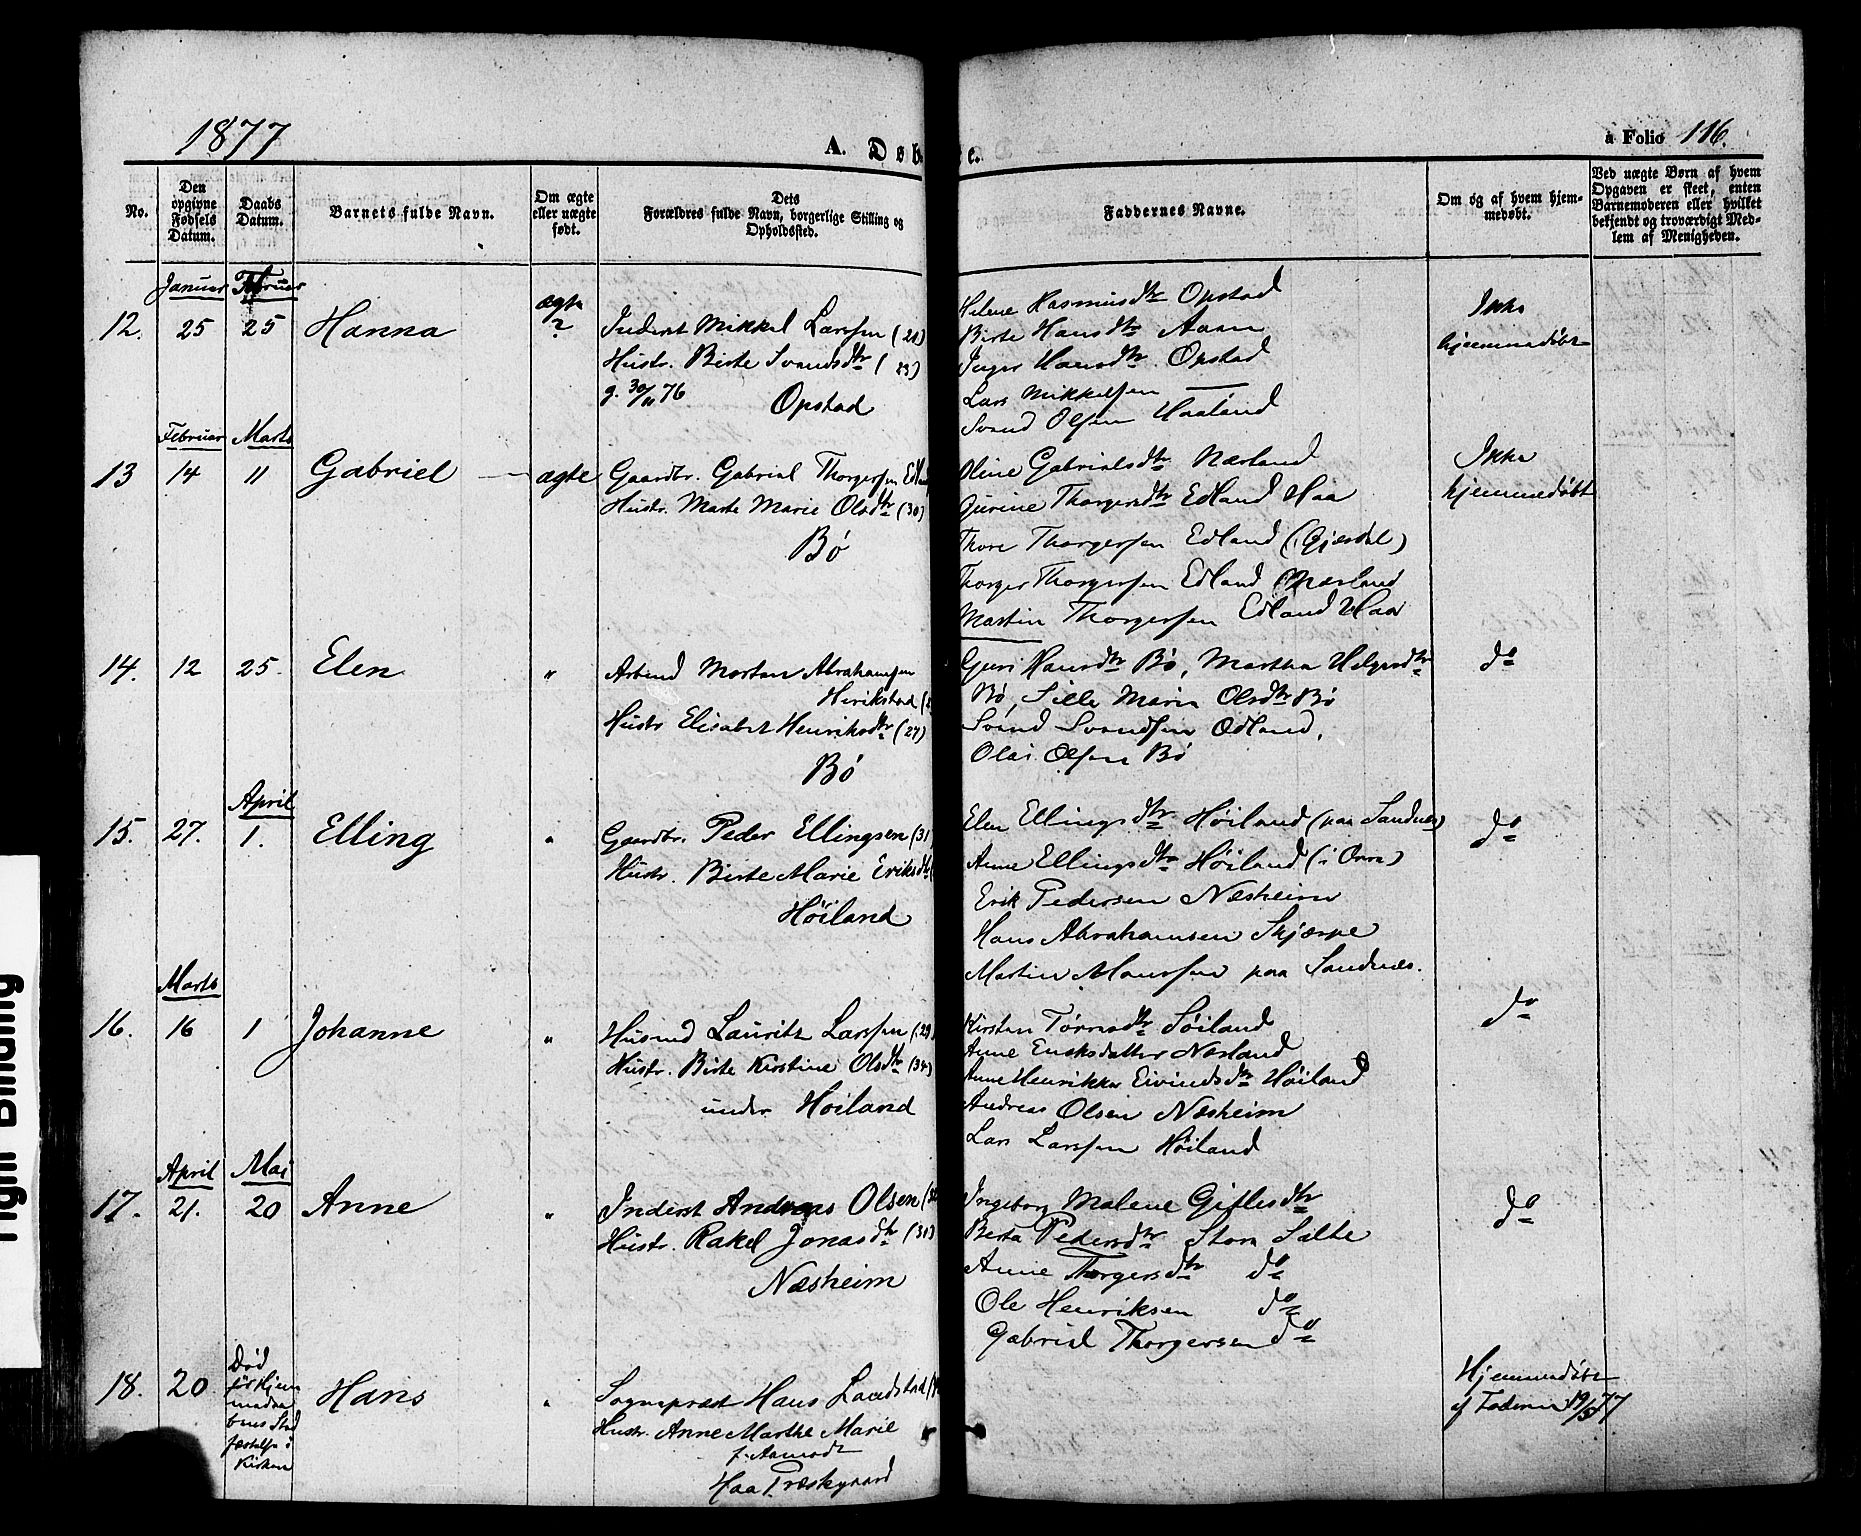 1877
A. Døbte.
a Folio 116.
No.
Den opgivne Fødsels Datum.
Daabs Datum.
Barnets fulde Navn.
Om ægte eller uægte født.
Dets Forældres fulde Navn, borgerlige Stilling og Opholdssted.
Faddernes Navne.
Om og af hvem hjemmedøbt.
Ved uægte Børn af hvem Opgaven er skeet, enten Barnemoderen eller hvilket bekjendt og troværdigt Medlem af Menigheden.
Januar Februar
12. 25 25 Hanna ægte ?
Inderst Mikkel Larssen
Hustr. Birte Svendsdtr (23)
g. 30/11 76 Opstad
Helene Rasmusdtr Opstad
Birte Hansdtr Aaen
Inger Hansdtr Opstad
Lars Mikkelsen —
Svend Olsen Haaland
Ikke
hjemmedøbt
Februar Marts
13 14 11 Gabriel — ægte
Gaardbr. Gabriel Thorgersen Edland
Hustr. Marte Marie Olsdtr (30)
Bø
Oline Gabrielsdtr Nærland
Gurine Thorgersdtr Edland Haa
Thore Thorgersen Edland (Gjæsdal)
Thorger Thorgersen Edland Nærland
Martin Thorgersen Edland Haa
Ikke
hjemmedøbt
14. 12 25. Elen "
Arbeid Morten Abrahamsen
Herikstad
Hustr Elisabet Henriksdtr (27)
Bø
Guri Hansdtr Bø, Martha Helgesdtr
Bø, Sille Marie Olsdtr Bø
Svend Svendsen Ødland,
Olai Olsen Bø
do
April
15. 27. 1. Elling "
Gaardbr. Peder Ellingsen (31
Hustr. Birte Marie Eriksdtr
Høiland
Elen Ellingsdtr Høiland (paa Sandnes)
Anne Ellingsdtr Høiland (i Orre)
Erik Pedersen Næsheim
Hans Abrahamsen Skjærpe
Martin Monssen paa Sandnæs.
do
Marts
16. 16 1 Johanne "
Husmd Lauritz Larssen (29
Hustr. Birte Kirstine Olsdtr (34)
under Høiland
Kirsten Tørresdtr Søiland
Anne Nærland
Anne Henrikke Eivindsdtr Høiland
Andreas Olsen Næsheim
Lars Larssen Høiland
do
April Mai
17. 21. 20 Anne "
Inderst Andreas Olsen
Hustr. Rakel Jonasdtr (30)
Næsheim
Ingeborg Malene Gitlesdtr
Berta Pedersdtr Stora Salte
Anne Thorgersdtr do
Ole Henriksen do
Gabriel Thorgersen do
do
18. 20 Død
før Hjem
medaa
bens Stad
fæstelse i
Kirken
Hans "
Sognepræst Hans Landstad
Hustr. Anne Marthe Marie
f. Aamodt
Haa Præstegaard
Hjemmedøbt
af Faderen 19/5 77
Right Binding